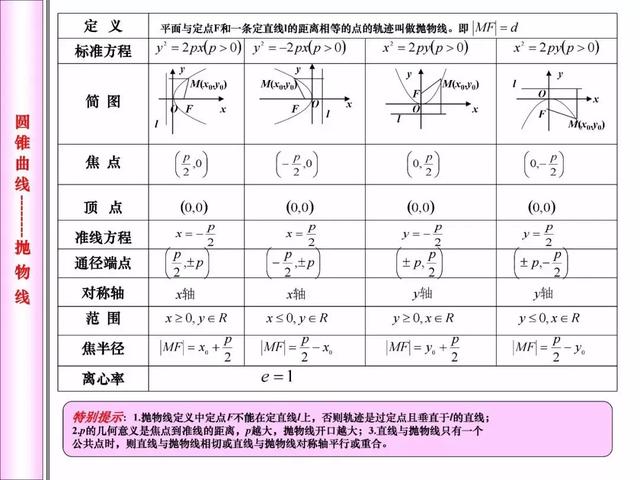 圆锥曲线------抛物线
定 义 平面与定点F和一条定直线l的距离相等的点的轨迹叫做抛物线。即 |MF|=d
标准方程 y²=2px(p>0) y²=-2px(p>0) x²=2py(p>0) x²=2py(p>0)
简 图
y M(x₀,y₀) O F x l
y M(x₀,y₀) F O x l
y M(x₀,y₀) F O x l
y l O x F M(x₀,y₀)
焦 点 (p/2,0) (-p/2,0) (0,p/2) (0,-p/2)
顶 点 (0,0) (0,0) (0,0) (0,0)
准线方程 x=-p/2 x=p/2 y=-p/2 y=p/2
通径端点 (p/2,±p) (-p/2,±p) (±p,p/2) (±p,-p/2)
对称轴 x轴 x轴 y轴 y轴
范 围 x≥0,y∈R x≤0,y∈R y≥0,x∈R y≤0,x∈R
焦半径 |MF|=x₀+p/2 |MF|=p/2-x₀ |MF|=y₀+p/2 |MF|=p/2-y₀
离心率 e=1
特别提示：1.抛物线定义中定点F不能在定直线l上，否则轨迹是过定点且垂直于l的直线；
2.p的几何意义是焦点到准线的距离，p越大，抛物线开口越大；3.直线与抛物线只有一个
公共点时，则直线与抛物线相切或直线与抛物线对称轴平行或重合。